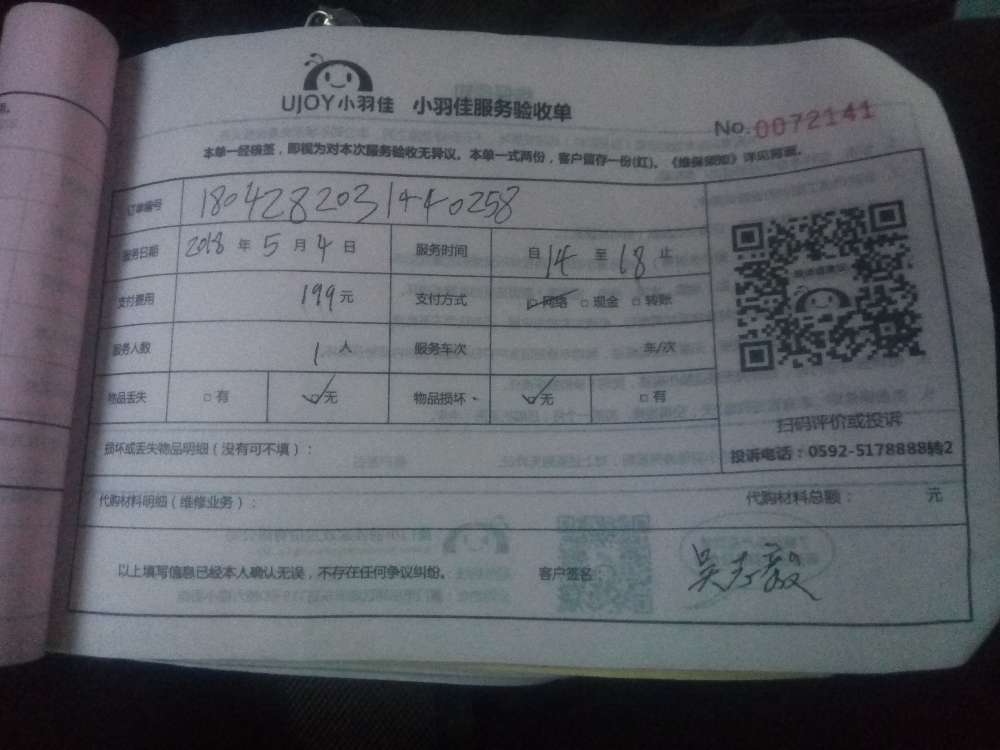 UJOY小羽佳 小羽佳服务验收单
No. 0072141
本单一经核签，即视为对本次服务验收无异议。本单一式两份，客户留存一份(红)。《维保须知》详见背面。
订单编号 1804282031440258
服务日期 2018 年 5 月 4 日 服务时间 自 14 至 18 止
支付费用 199 元 支付方式 □网络 □现金 □转账
服务人数 1 人 服务车次 车/次
物品丢失 □有 □无 物品损坏 □无 □有
扫码评价或投诉
投诉电话：0592-5178888转2
损坏或丢失物品明细（没有可不填）：
代购材料明细（维修业务）： 代购材料总额： 元
以上填写信息已经本人确认无误，不存在任何争议纠纷。 客户签名： 吴志毅